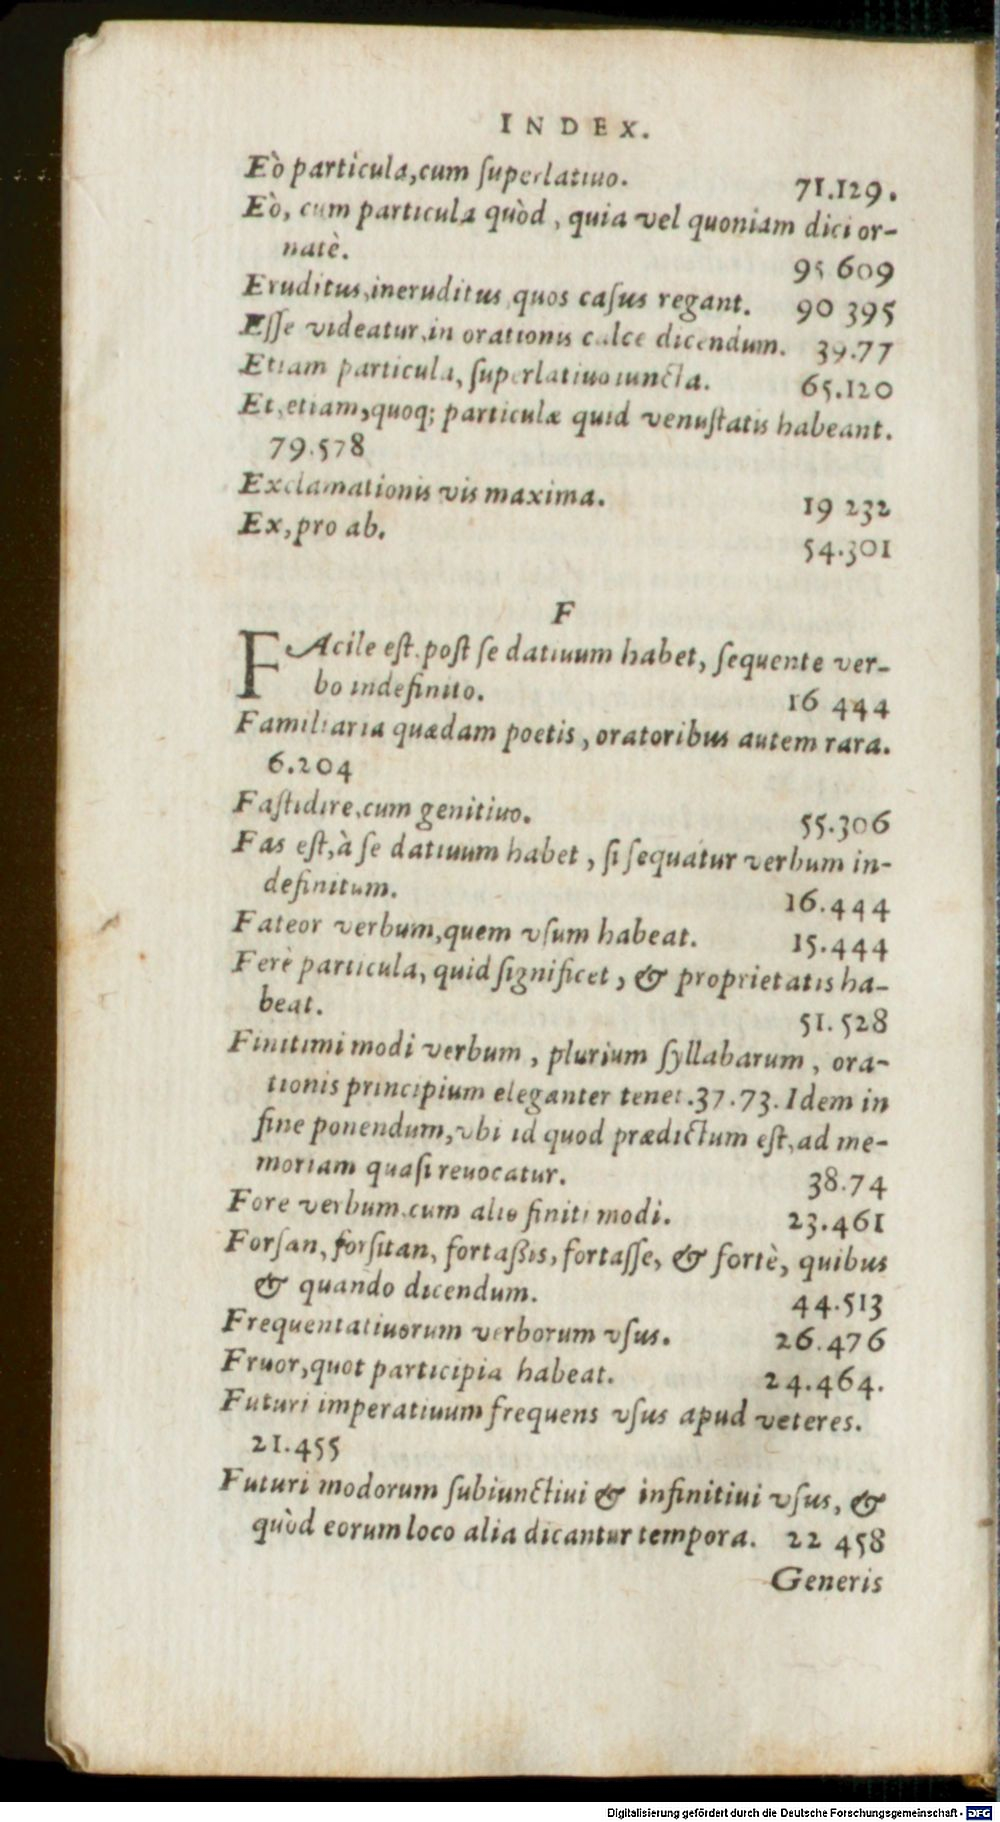 INDEX.
Eò particula, cum ſuperlatiuo. 71.129.
Eò, cum particula quòd, quia vel quoniam dici or-
natè. 95 609
Eruditus, ineruditus quos caſus regant. 90 395
Eſſe videatur, in orationis calce dicendum. 39.77
Etiam particula, ſuperlatiuo iuncta. 65.120
Et, etiam, quoq; particulæ quid venuſtatis habeant.
79.578
Exclamationis vis maxima. 19 232
Ex, pro ab. 54.301
F
FAcile eſt, poſt ſe datiuum habet, ſequente ver-
bo indefinito. 16 444
Familiaria quædam poetis, oratoribus autem rara.
6.204
Faſtidire, cum genitiuo. 55.306
Fas eſt, à ſe datiuum habet, ſi ſequatur verbum in-
definitum. 16.444
Fateor verbum, quem vſum habeat. 15.444
Ferè particula, quid ſignificet, & proprietatis ha-
beat. 51.528
Finitimi modi verbum, plurium ſyllabarum, ora-
tionis principium eleganter tenet. 37.73. Idem in
fine ponendum, vbi id quod prædictum eſt, ad me-
moriam quaſi reuocatur. 38.74
Fore verbum, cum alio finiti modi. 23.461
Forſan, forſitan, fortaßis, fortaſſe, & fortè, quibus
& quando dicendum. 44.513
Frequentatiuorum verborum vſus. 26.476
Fruor, quot participia habeat. 24.464.
Futuri imperatiuum frequens vſus apud veteres.
21.455
Futuri modorum ſubiunctiui & infinitiui vſus, &
quòd eorum loco alia dicantur tempora. 22 458
Generis
Digitalisierung gefördert durch die Deutsche Forschungsgemeinschaft - DFG